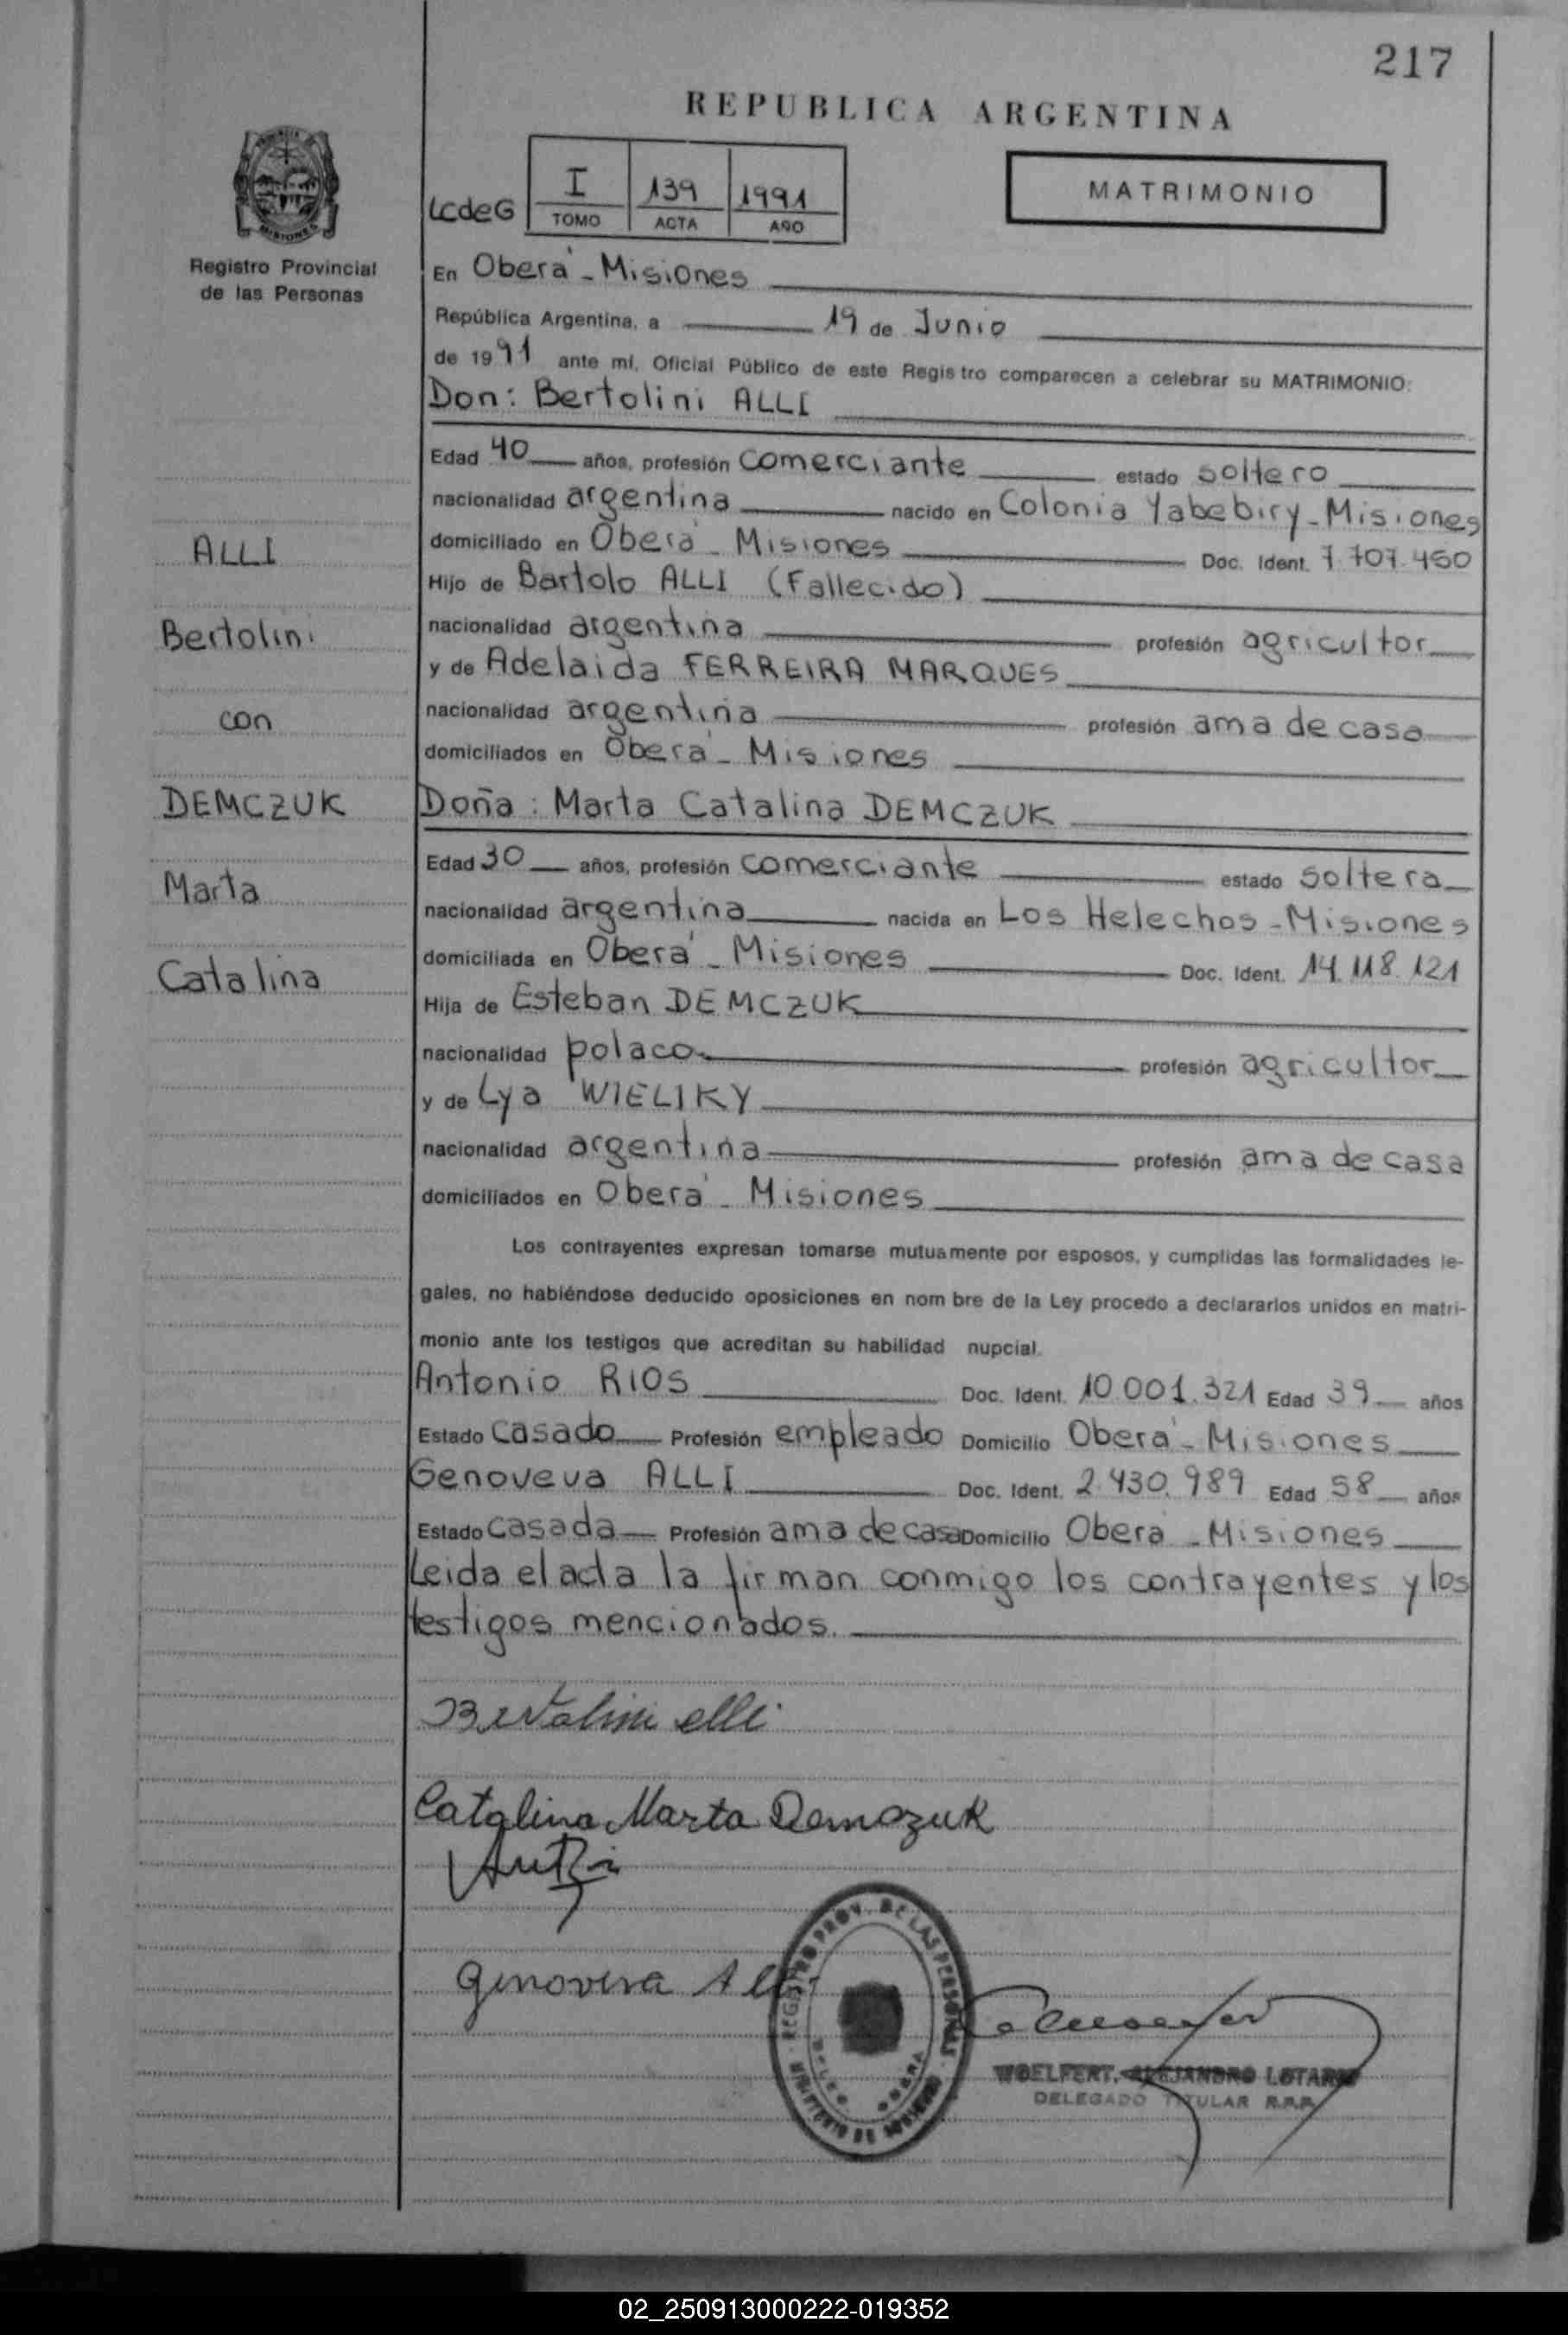 217
REPUBLICA ARGENTINA
LCdeG
I 139 1991
TOMO ACTA AÑO
MATRIMONIO
MISIONES
Registro Provincial
de las Personas
En Oberá - Misiones
República Argentina, a 19 de Junio
de 1991 ante mí, Oficial Público de este Registro comparecen a celebrar su MATRIMONIO:
Don: Bertolini ALLI
Edad 40 años, profesión comerciante estado soltero
nacionalidad argentina nacido en Colonia Yabebiry - Misiones
domiciliado en Oberá - Misiones Doc. Ident. 7.707.450
Hijo de Bartolo ALLI (Fallecido)
nacionalidad argentina profesión agricultor
y de Adelaida FERREIRA MARQUES
nacionalidad argentina profesión ama de casa
domiciliados en Oberá - Misiones
Doña: Marta Catalina DEMCZUK
Edad 30 años, profesión comerciante estado soltera
nacionalidad argentina nacida en Los Helechos - Misiones
domiciliada en Oberá - Misiones Doc. Ident. 14.118.121
Hija de Esteban DEMCZUK
nacionalidad polaco profesión agricultor
y de Lya WIELIKY
nacionalidad argentina profesión ama de casa
domiciliados en Oberá - Misiones
ALLI
Bertolini
con
DEMCZUK
Marta
Catalina
Los contrayentes expresan tomarse mutuamente por esposos, y cumplidas las formalidades le-
gales, no habiéndose deducido oposiciones en nom bre de la Ley procedo a declararlos unidos en matri-
monio ante los testigos que acreditan su habilidad nupcial.
Antonio RIOS Doc. Ident. 10.001.321 Edad 39 años
Estado casado Profesión empleado Domicilio Oberá - Misiones
Genoveva ALLI Doc. Ident. 2.430.989 Edad 58 años
Estado casada Profesión ama de casa Domicilio Oberá - Misiones
Leida el acta la firman conmigo los contrayentes y los
testigos mencionados.
Bertolini Alli
Catalina Marta Demczuk
Genoveva Alli
REGISTRO PROV. DE LAS PERSONAS
MINISTERIO DE GOBIERNO
WOELFERT, ALEJANDRO LOTARIO
DELEGADO TITULAR R.P.P.
02_250913000222-019352